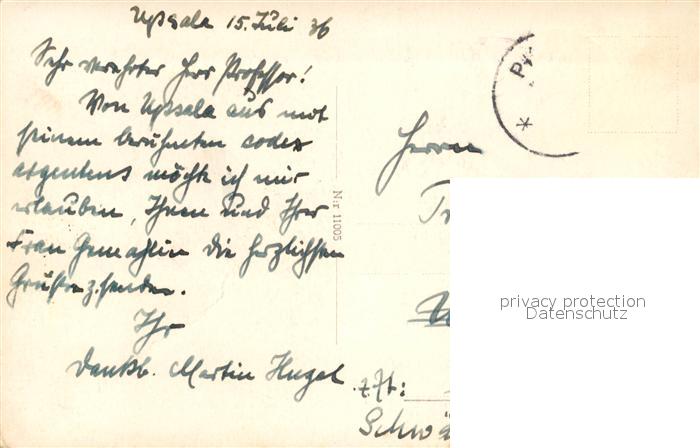 Upsala 15. Juli 36
Sehr verehrter Herr Professor!
Von Upsala aus mit
seinem berühmten codex
argenteus möchte ich mir
erlauben, Ihnen und Ihrer
Frau Gemahlin die herzlichsten
Grüße z. senden.
Ihr
dankb. Martin Hugel
Nr 11005
Herrn
z. Zt:
Schwä
privacy protection
Datenschutz